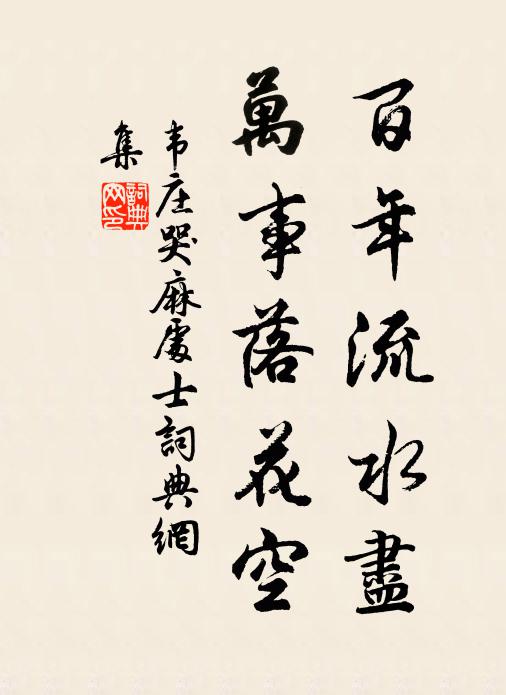 百年流水盡
萬事落花空
韦庄哭麻處士詞典網
集
詞典
网印